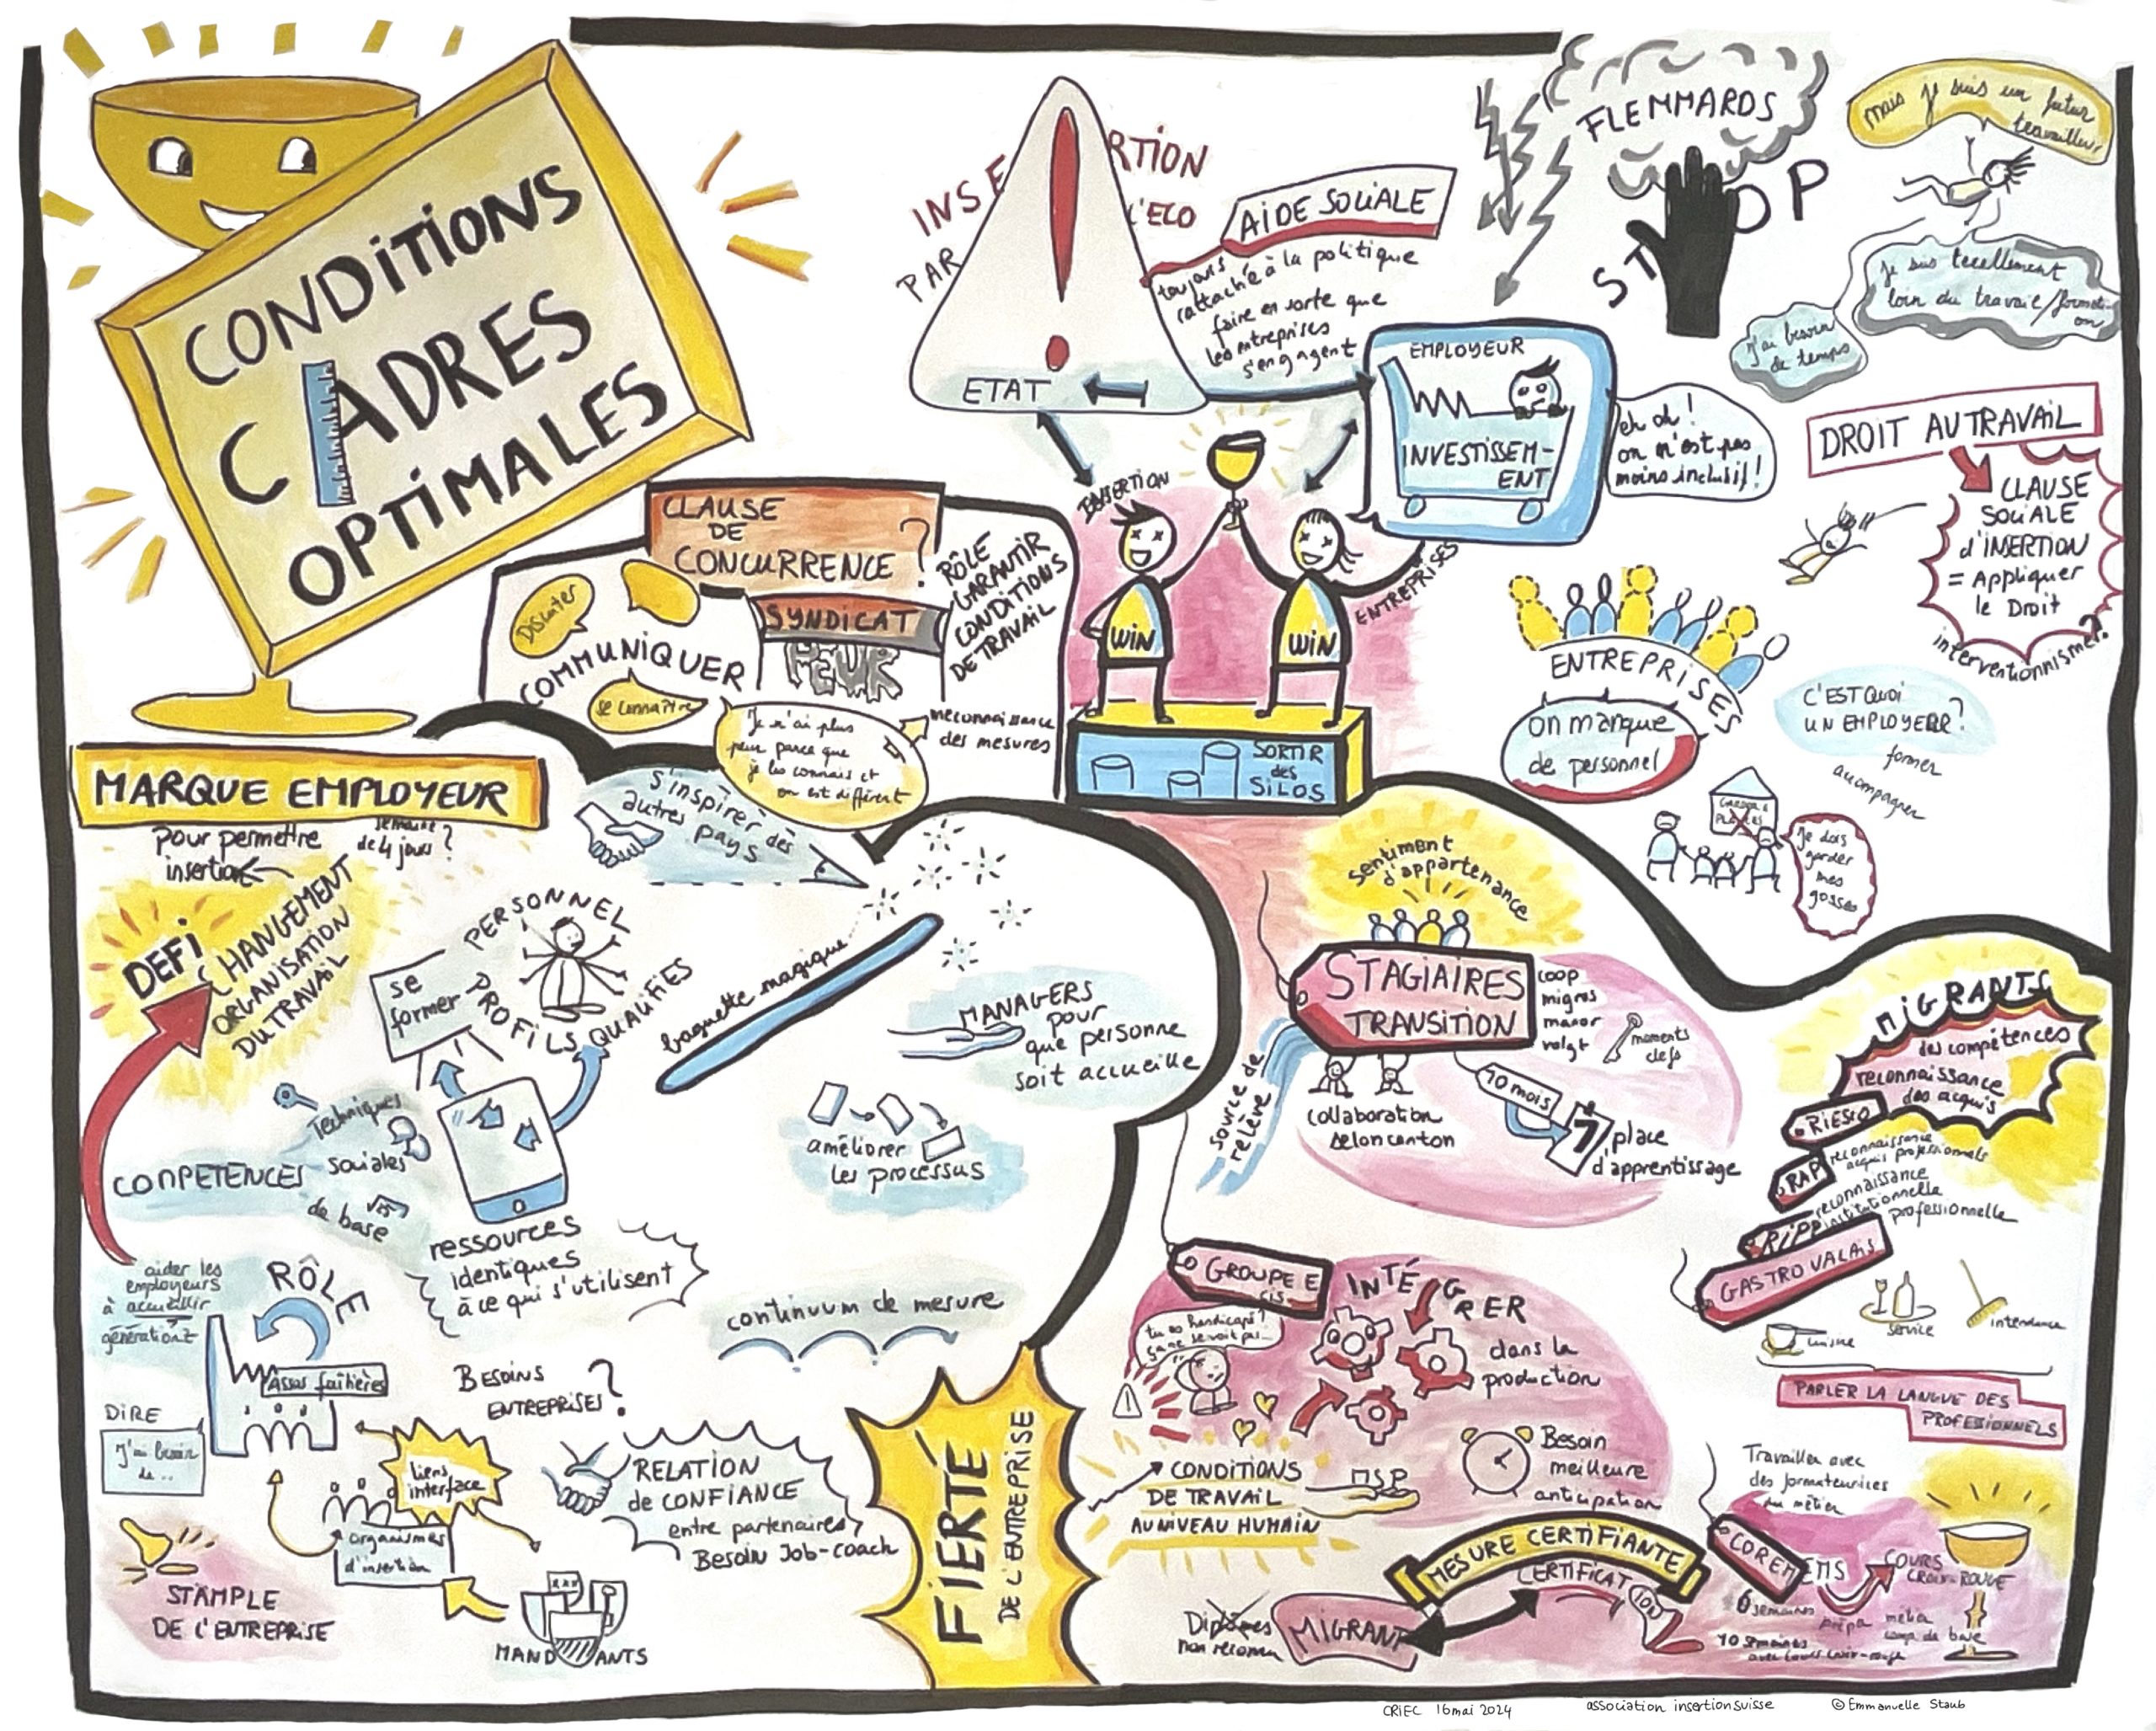 CONDITIONS
CADRES
OPTIMALES
INSERTION
PAR L'ECO
ETAT
AIDE SOCIALE
toujours
rattaché à la politique
faire en sorte que
les entreprises
s'engagent
FLEMMARDS
STOP
mais je suis un futur
travailleur
je suis tellement
loin du travail/formati-
on
J'ai besoin
de temps
EMPLOYEUR
INVESTISSEM-
ENT
eh oh!
on n'est pas
moins inclusif!
DROIT AU TRAVAIL
CLAUSE
SOCIALE
d'INSERTION
= Appliquer
le Droit
interventionnisme?
CLAUSE
DE
CONCURRENCE ?
SYNDICAT
PEUR
RÔLE
GARANTIR
CONDITIONS
DE TRAVAIL
Discuter
COMMUNIQUER
se connaître
Je n'ai plus
peur parce que
je les connais et
on est différent
méconnaissance
des mesures
INSERTION
ENTREPRISES
WIN
WIN
SORTIR
des
SILOS
ENTREPRISES
on manque
de personnel
C'EST QUOI
UN EMPLOYEUR?
former
accompagner
Je dois
garder
mes
gosses
MARQUE EMPLOYEUR
pour permettre
insertion
semaine
de 4 jours?
DEFI
CHANGEMENT
ORGANISATION
DU TRAVAIL
S'inspirer des
autres pays
se
former
PERSONNEL
PROFILS QUALIFIÉS
baguette magique
MANAGERS
pour
que personne
soit accueillie
améliorer
les processus
continuum de mesure
COMPETENCES
Techniques
sociales
de base
ressources
identiques
à ce qui s'utilisent
aider les
employeurs
à accueillir
génération Z
RÔLE
Assos faîtières
DIRE
J'ai besoin
de..
BESOINS
ENTREPRISES?
liens
interface
organismes
d'insertion
RELATION
de CONFIANCE
entre partenaires
Besoin Job-coach
STÄMPLE
DE L'ENTREPRISE
MANDANTS
FIERTÉ
DE L'ENTREPRISE
sentiment
d'appartenance
STAGIAIRES
TRANSITION
coop
migros
manor
volgt
moments
clefs
source de
relève
collaboration
selon canton
10 mois
place
d'apprentissage
MIGRANTS
des compétences
reconnaissance
des acquis
RIESCO
RAP
reconnaissance
acquis professionnels
RIPP
reconnaissance
institutionnelle
professionnelle
GASTROVALAIS
cuisine
service
intendance
PARLER LA LANGUE DES
PROFESSIONNELS
GROUPE E
INTÉGRER
dans la
production
tu es handicapé?
ça ne se voit pas...
Besoin
meilleure
anticipation
CONDITIONS
DE TRAVAIL
AU NIVEAU HUMAIN
MSP
MESURE CERTIFIANTE
CERTIFICATION
Diplômes
non reconnu
MIGRANT
Travailler avec
des formateurices
du métier
COREM
EMS
COURS
CROIX-ROUGE
6 semaines
prépa
métier
de base
10 semaines
avec cours croix-rouge
CRIEC 16 mai 2024
association insertionsuisse
© Emmanuelle Staub